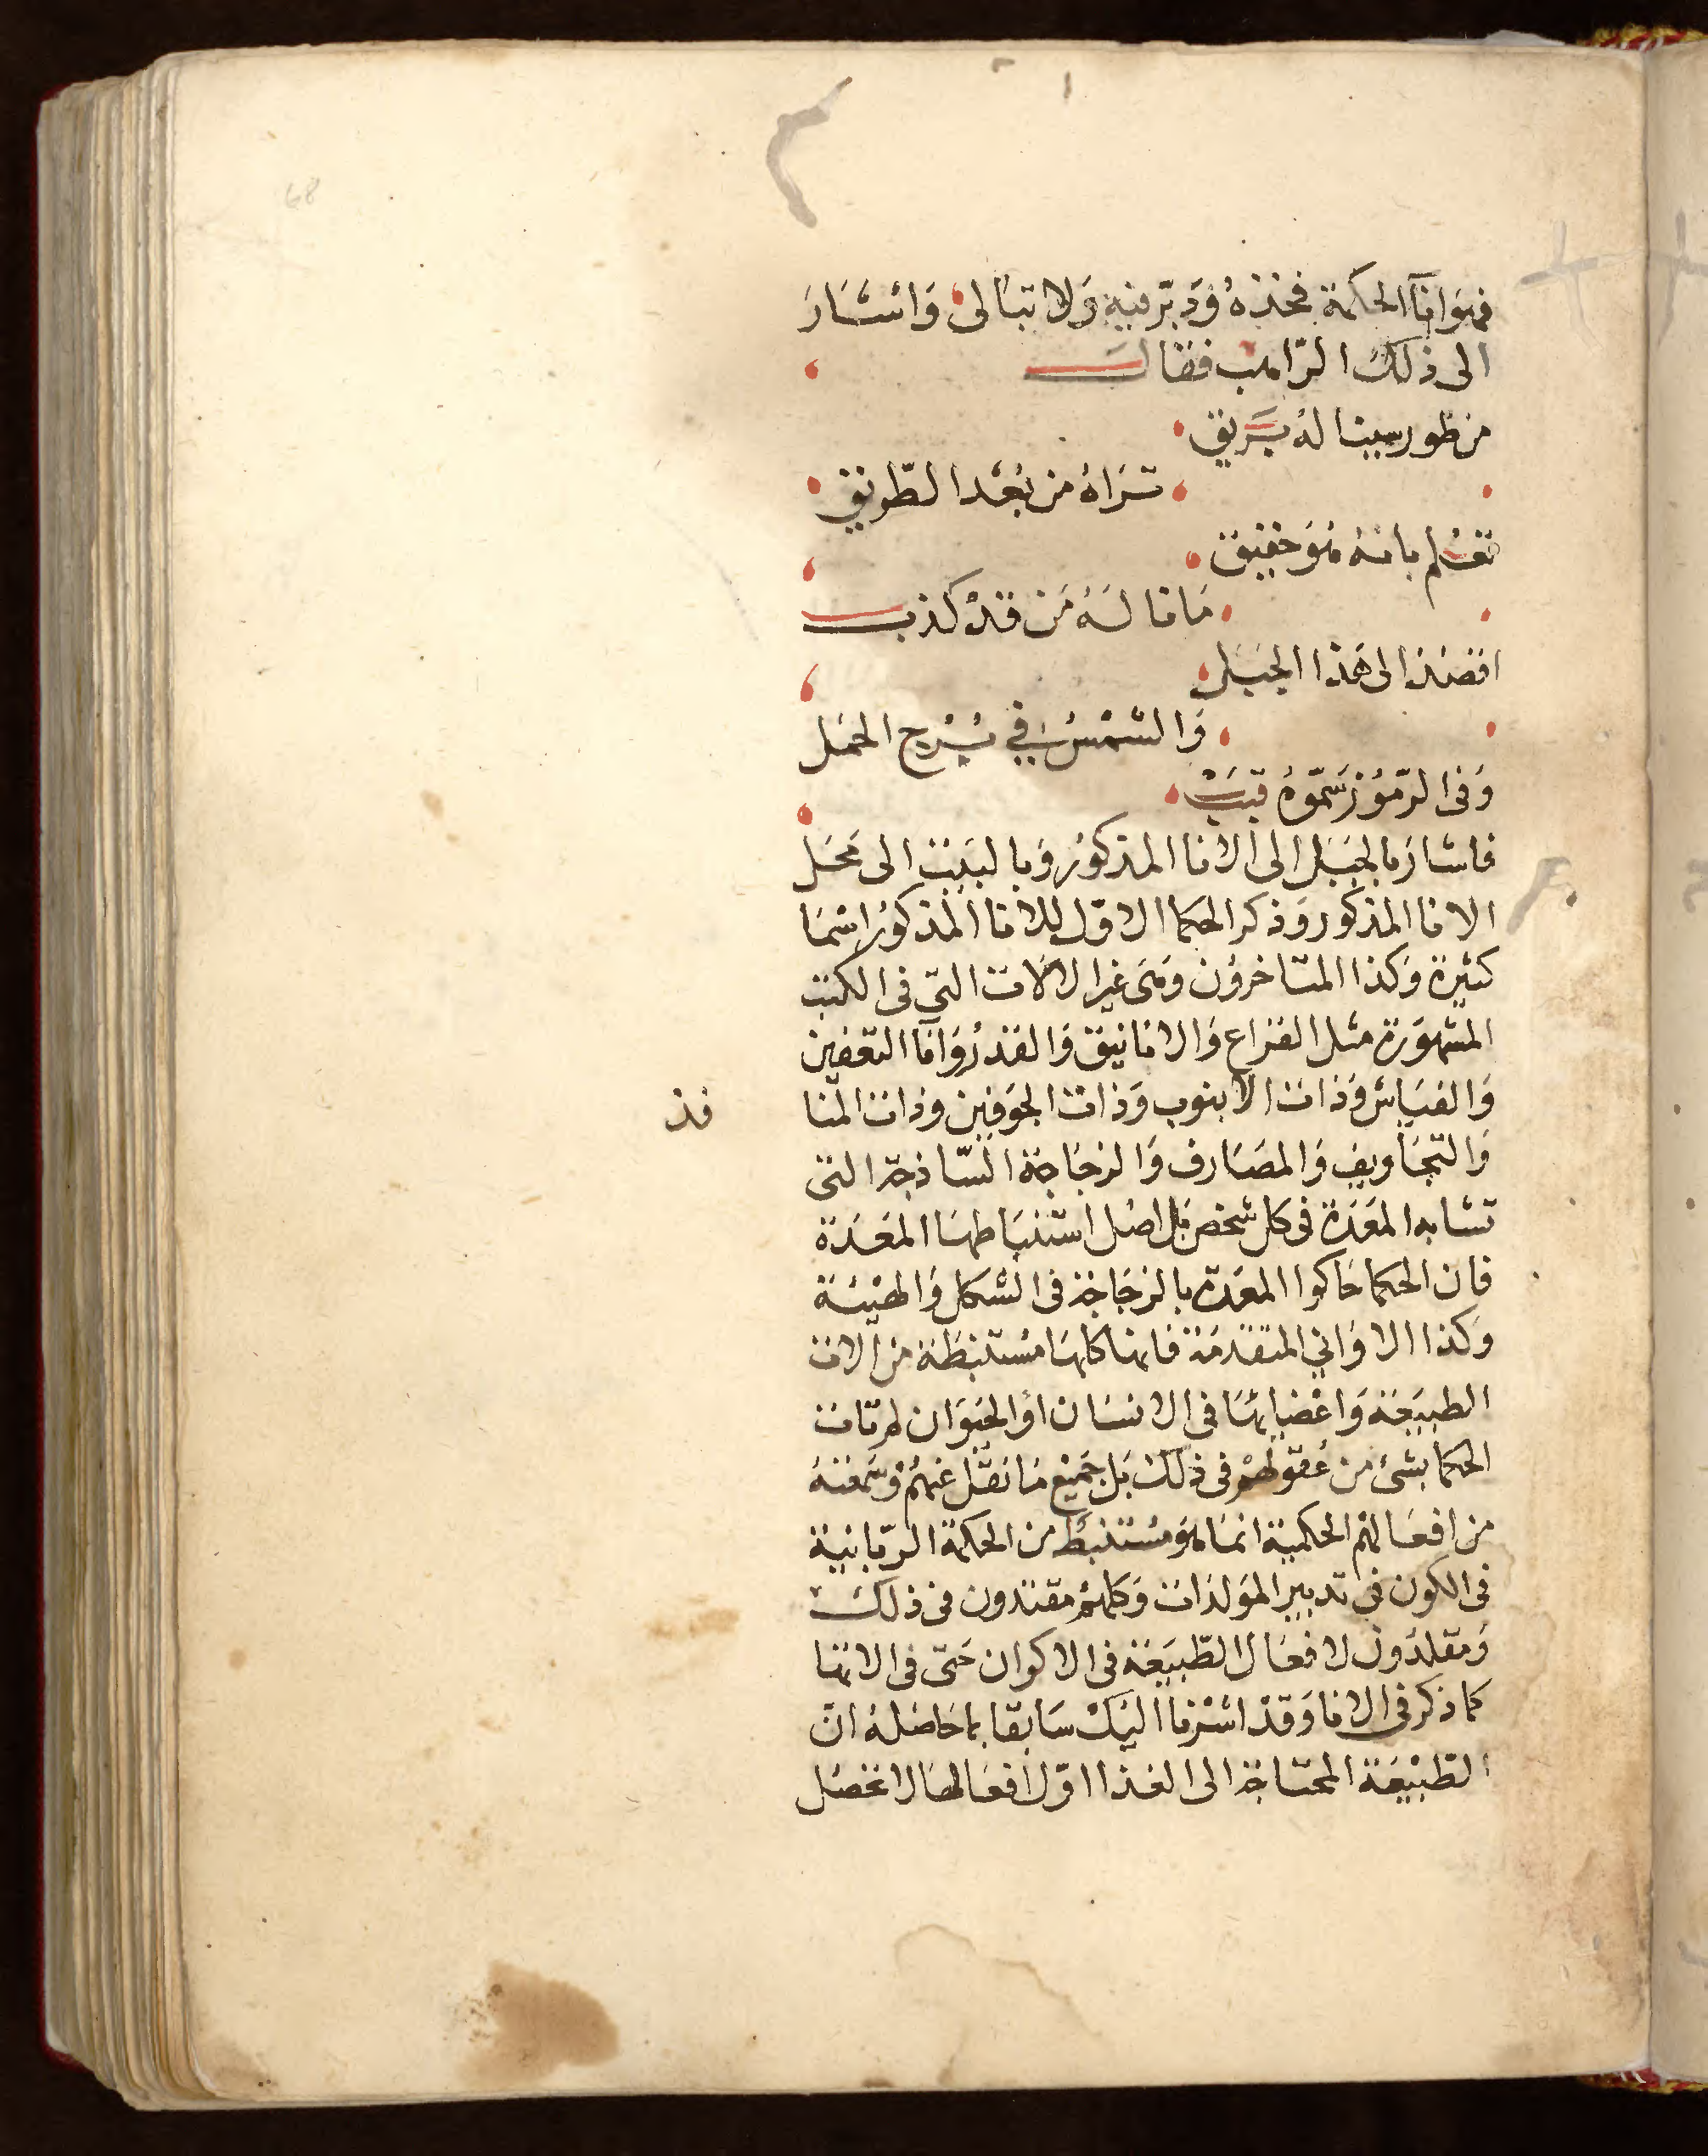 فهو انا الحكمة فخذه ودبر فيه ولا تبالى واشار
الى ذلك الراهب فقال
من طور سينا له بريق
تراه من بعد الطريق
تعلم بانه هو حقيق
ما قاله من قد كذب
اقصد الى هذا الجبل
والشمس في برج الحمل
وفى الرموز سموه قبب
فاشار بالجبل الى الانا المذكور وبالبيت الى محل
الانا المذكور وذكر الحكما الاول للانا المذكور اسما
كثيرة وكذا المتاخرون وهى غير الالات التي فى الكتب
المشهورة مثل القراع والانانيق والقدر وانا التعفين
والفياش وذات الانبوب وذات الجوفين وذات المنا
فذ
والتجاويف والمصارف والزجاجة الساذجة التى
تشابه المعدة فى كل شخص بل اصل استنباطها المعدة
فان الحكما حاكوا المعدة بالزجاجة فى الشكل والهيئة
وكذا الاواني المتقدمة فانها كلها مستنبطة من الات
الطبيعة واعضايها فى الانسان او الحيوان لم تات
الحكما بشئ من عقولهم فى ذلك بل جميع ما نقل عنهم وسمعته
من افعالهم الحكمية انما هو مستنبط من الحكمة الربانية
فى الكون فى تدبير المولدات وكلهم مقتدون فى ذلك
ومقلدون لافعال الطبيعة فى الاكوان حتى فى الانها
كما ذكر فى الانا وقد اشرنا اليك سابقا بما حاصله ان
الطبيعة المحتاجة الى الغذا اول افعالها لا تحصل